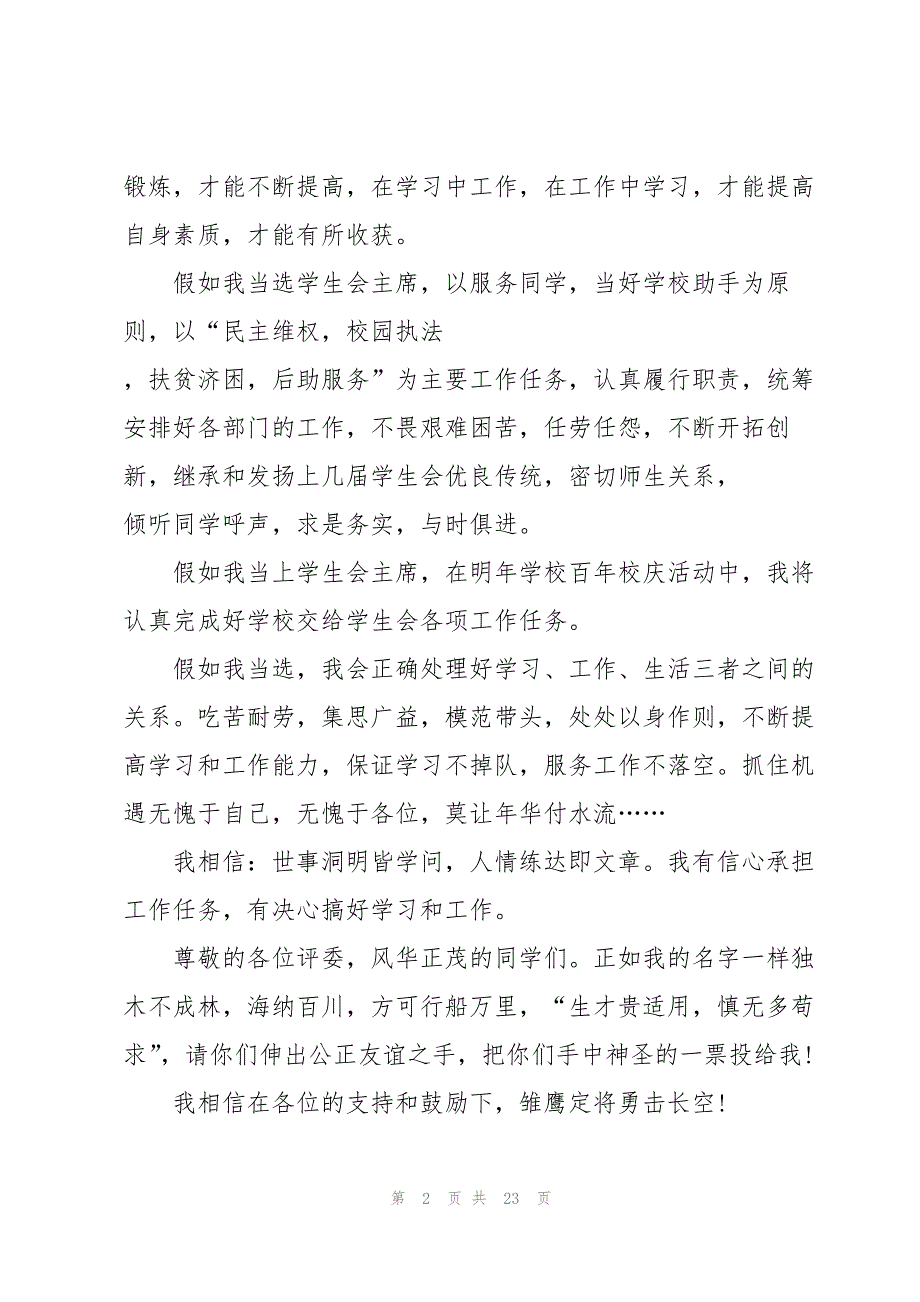 锻炼，才能不断提高，在学习中工作，在工作中学习，才能提高
自身素质，才能有所收获。
假如我当选学生会主席，以服务同学，当好学校助手为原
则，以“民主维权，校园执法
，扶贫济困，后助服务”为主要工作任务，认真履行职责，统筹
安排好各部门的工作，不畏艰难困苦，任劳任怨，不断开拓创
新，继承和发扬上几届学生会优良传统，密切师生关系，
倾听同学呼声，求是务实，与时俱进。
假如我当上学生会主席，在明年学校百年校庆活动中，我将
认真完成好学校交给学生会各项工作任务。
假如我当选，我会正确处理好学习、工作、生活三者之间的
关系。吃苦耐劳，集思广益，模范带头，处处以身作则，不断提
高学习和工作能力，保证学习不掉队，服务工作不落空。抓住机
遇无愧于自己，无愧于各位，莫让年华付水流……
我相信：世事洞明皆学问，人情练达即文章。我有信心承担
工作任务，有决心搞好学习和工作。
尊敬的各位评委，风华正茂的同学们。正如我的名字一样独
木不成林，海纳百川，方可行船万里，“生才贵适用，慎无多苟
求”，请你们伸出公正友谊之手，把你们手中神圣的一票投给我!
我相信在各位的支持和鼓励下，雏鹰定将勇击长空!
第 2 页 共 23 页